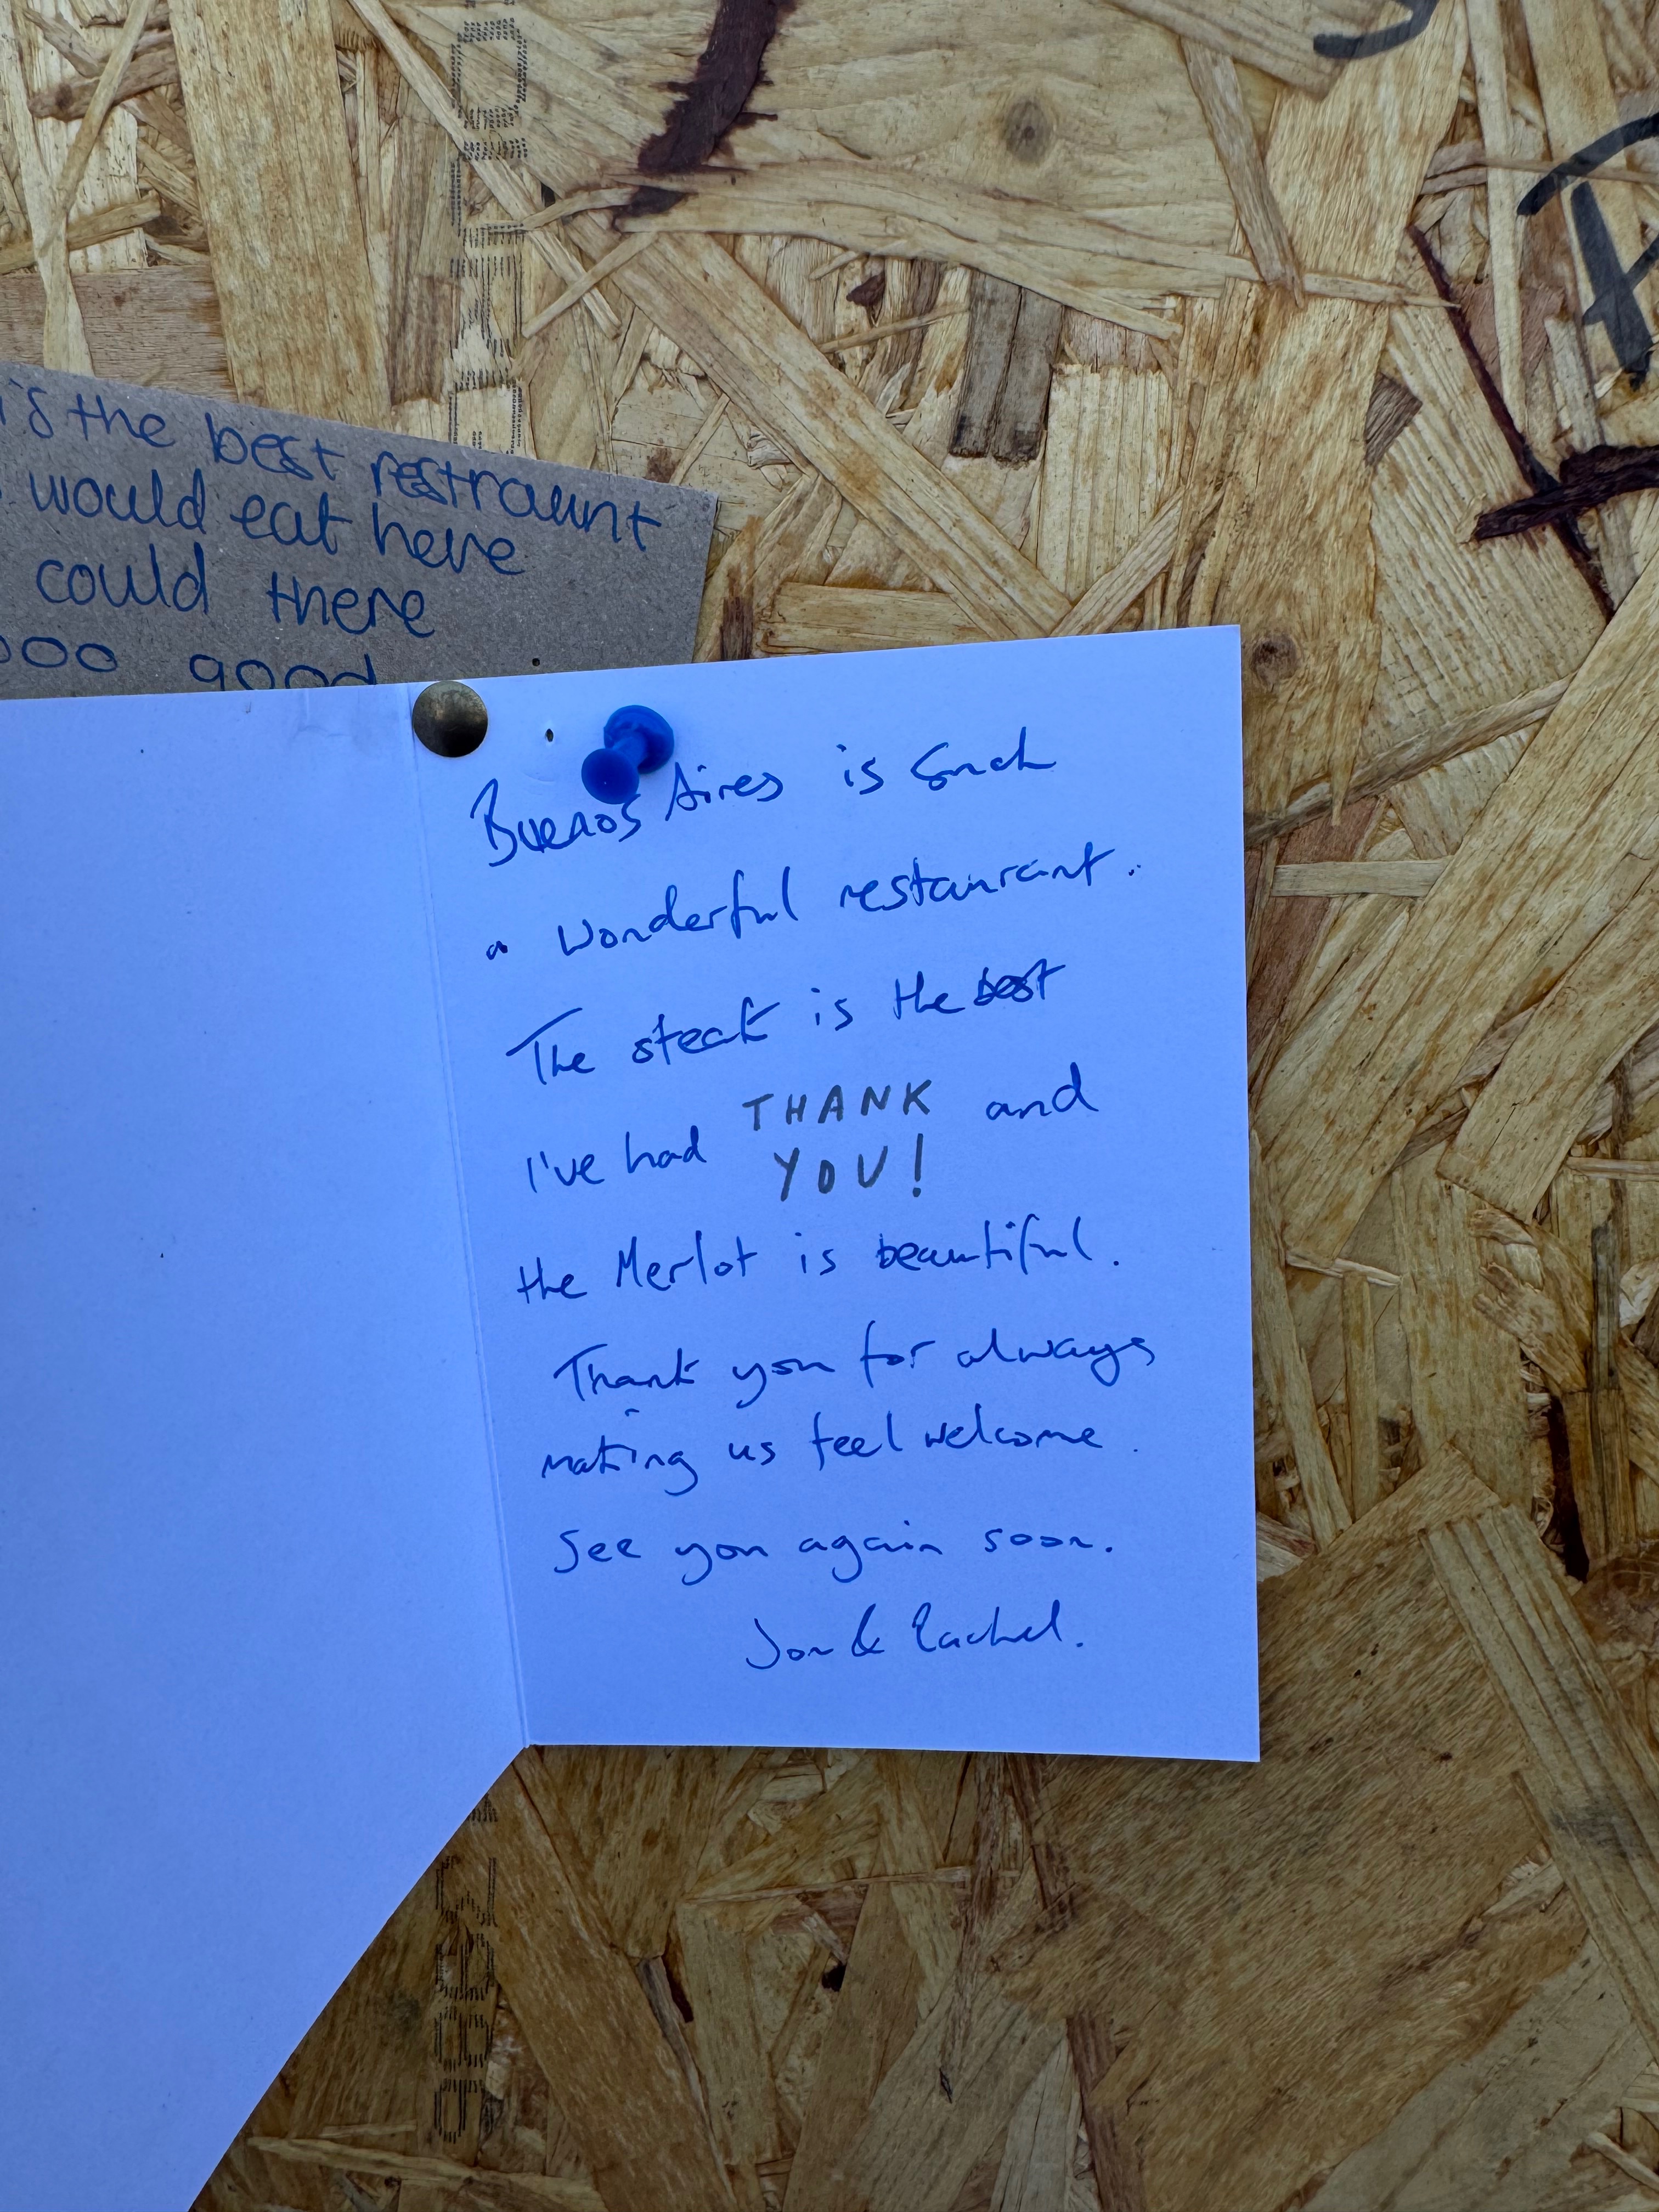 is the best restraunt
would eat here
could there
ooo good
Buenos Aires is such
a wonderful restaurant.
The steak is the best
I've had THANK and
YOU!
the Merlot is beautiful.
Thank you for always
making us feel welcome.
See you again soon.
Jon & Rachel.